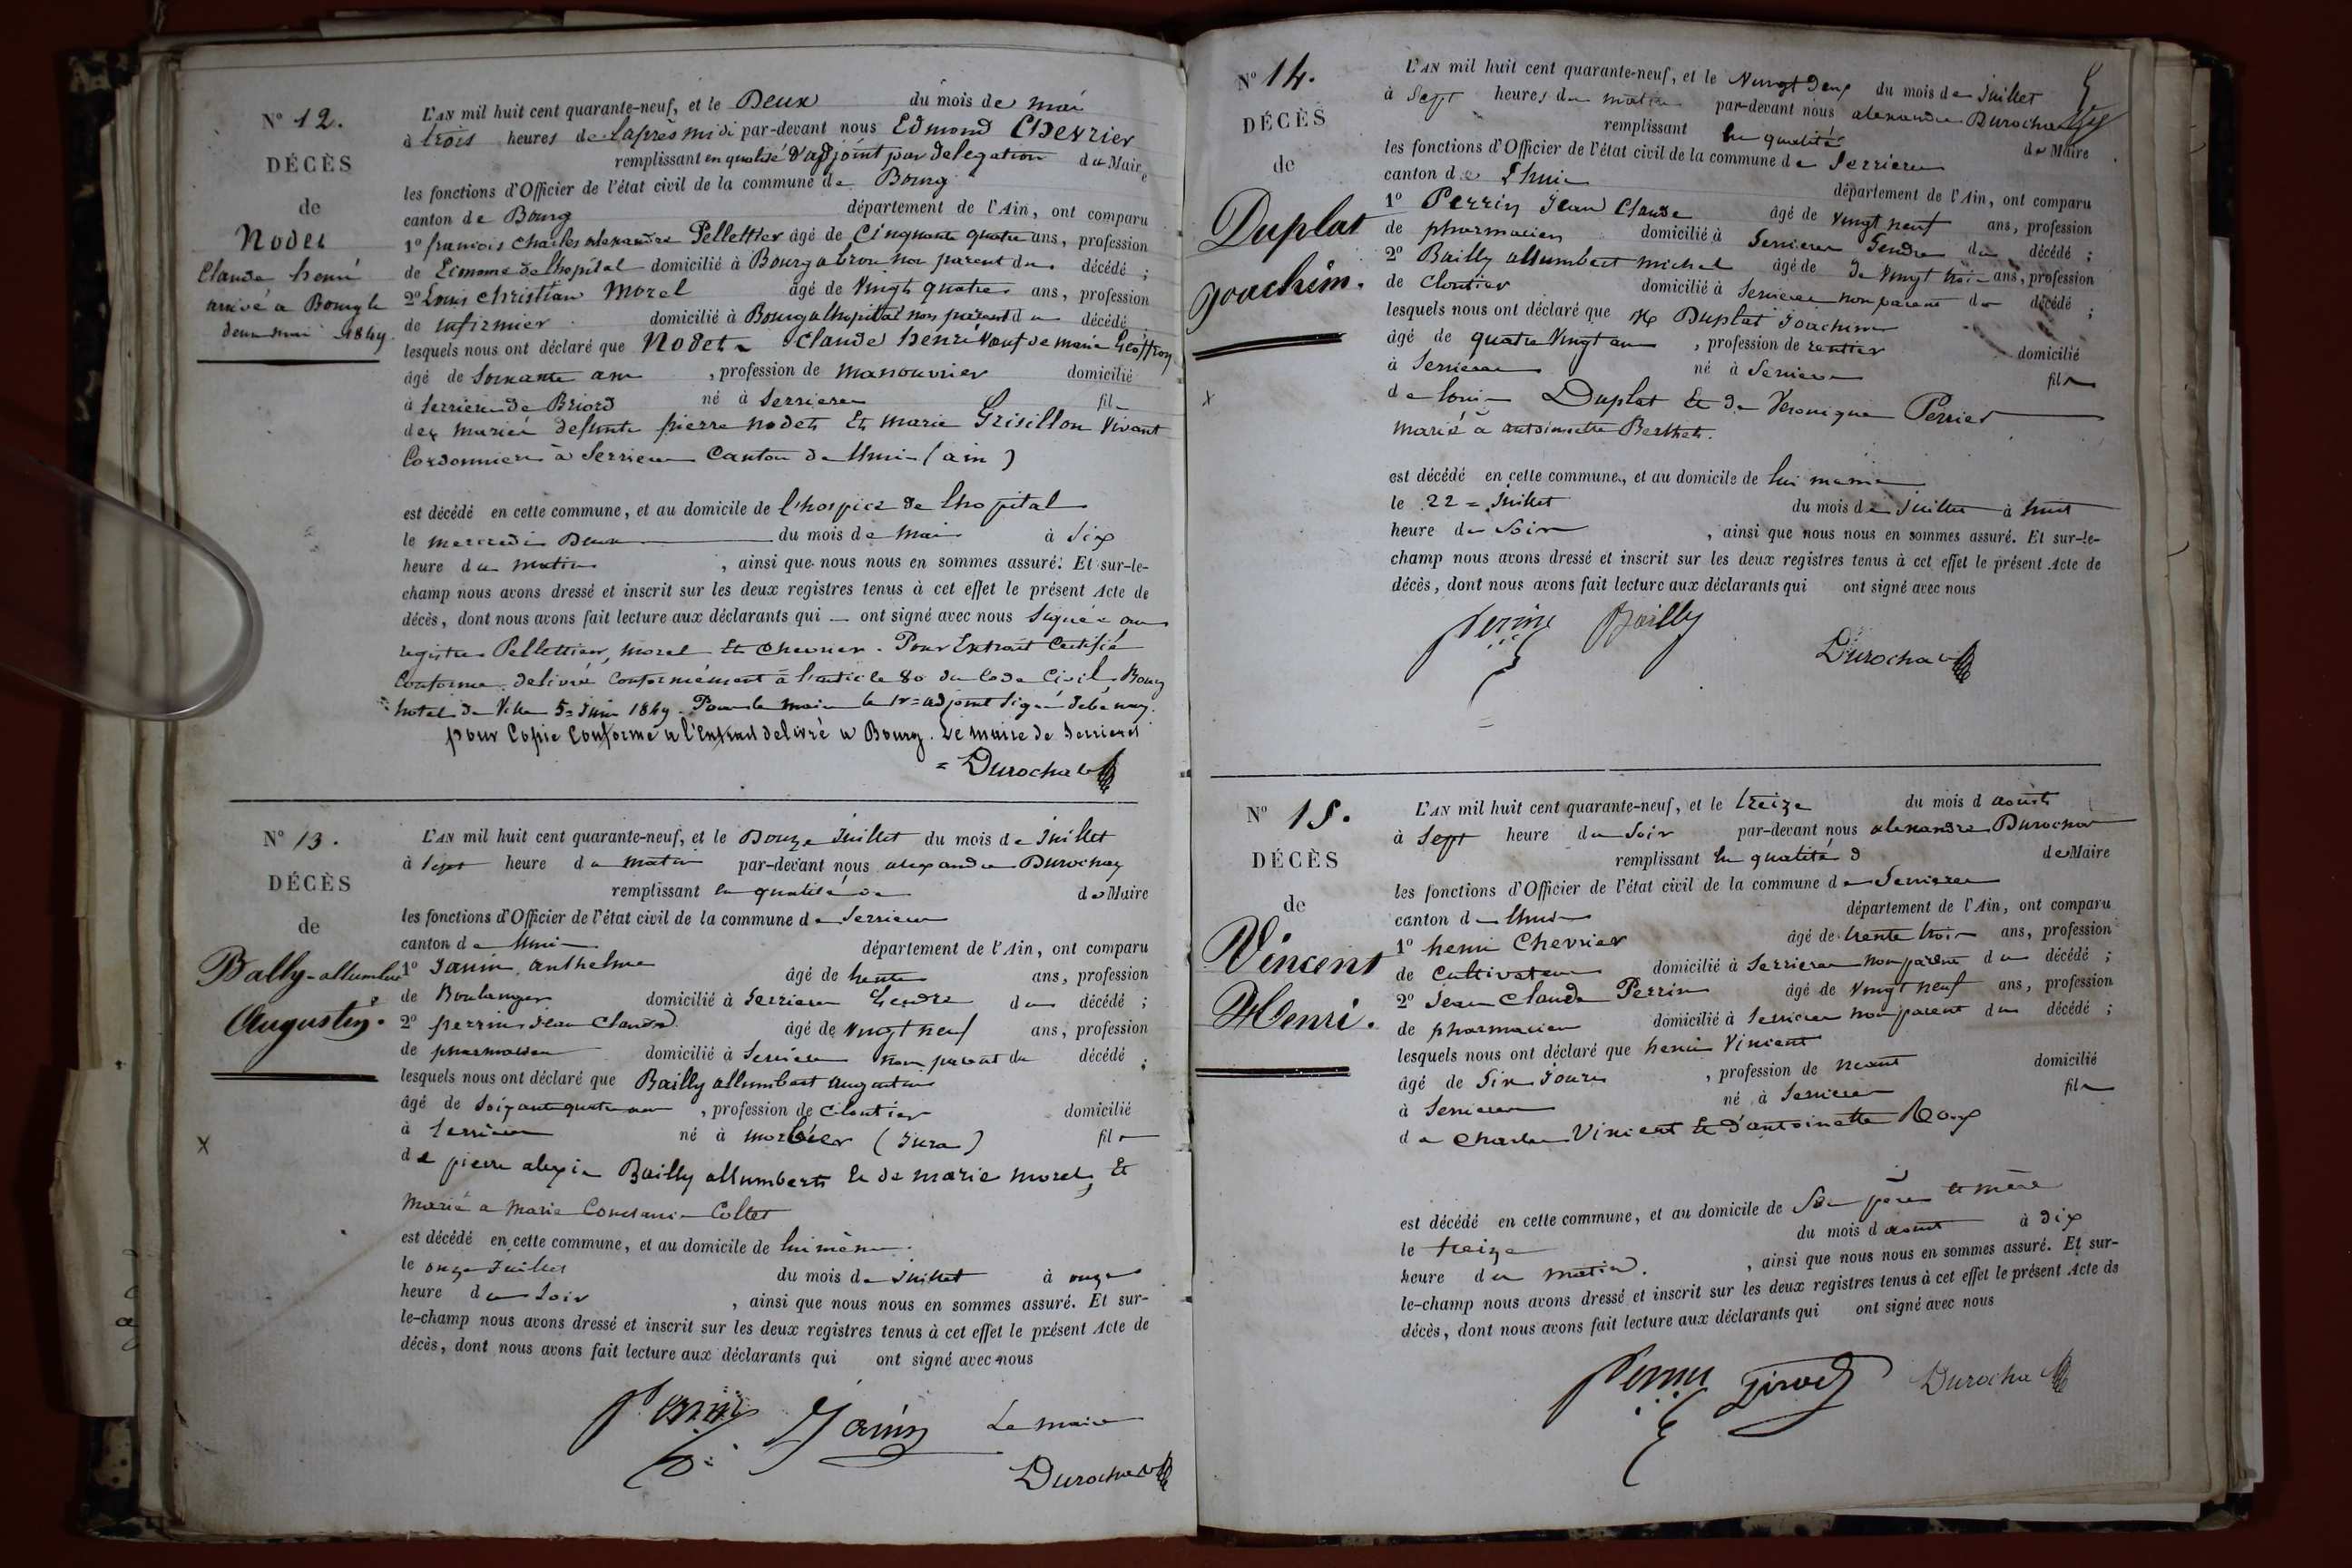 N° 12.
DÉCÈS
de
Nodet
Claude henri
arrivé a Bourg le
deux mai 1849.
L'AN mil huit cent quarante-neuf, et le Deux du mois de mai
à trois heures de Laprès midi par-devant nous Edmond Chevrier
remplissant en qualité d'adjoint par delegation du Maire
les fonctions d'Officier de l'état civil de la commune de Bourg
canton de Bourg département de l'Ain, ont comparu
1° francois Charles alexandre Pellettier âgé de Cinquante quatre ans, profession
de Econome de lhopital domicilié à Bourg abron non parent du décédé ;
2° Louis Christian Morel âgé de Vingt quatre ans, profession
de infirmier domicilié à Bourg a lhopital non parent du décédé ;
lesquels nous ont déclaré que Nodet Claude henri Veuf de marie Geoffroy
âgé de Soixante ans , profession de manouvrier domicilié
à Serrieres de Briord né à Serrieres fils
des mariés defunts pierre nodet Et marie Grisillon Vivant
Cordonnier à Serrieres Canton de Lhuis (ain)
est décédé en cette commune, et au domicile de l'hospice de lhopital
le mercredi Deux du mois de mai à Six
heure du matin , ainsi que nous nous en sommes assuré. Et sur-le-
champ nous avons dressé et inscrit sur les deux registres tenus à cet effet le présent Acte de
décès, dont nous avons fait lecture aux déclarants qui ont signé avec nous Signés au
registre Pellettier, morel Et Chevrier. Pour Extrait Certifié
Conforme delivré Conformément à l'article 80 du Code Civil. Bourg
hotel de Ville 5 Juin 1849. Pour le maire le 1er adjoint Signé
pour Copie Conforme a l'Extrait delivré a Bourg. Le maire de Serrieres
Durochat
N° 13.
DÉCÈS
de
Bally-allumbert
Augustin.
X
L'AN mil huit cent quarante-neuf, et le Douze Juillet du mois de Juillet
à Sept heure du matin par-devant nous alexandre Durochat
remplissant en qualité de de Maire
les fonctions d'Officier de l'état civil de la commune de Serrieres
canton de Lhuis département de l'Ain, ont comparu
1° Janin anthelme âgé de trente ans, profession
de Boulanger domicilié à Serrieres Gendre du décédé ;
2° perrin Jean Claude âgé de Vingt neuf ans, profession
de pharmacien domicilié à Serrieres non parent du décédé ;
lesquels nous ont déclaré que Bailly allumbert augustin
âgé de Soixante quatre ans , profession de Cloutier domicilié
à Serrieres né à morbier (Jura) fils
de pierre alexis Bailly allumbert Et de marie morel, Et
marié a marie Collet
est décédé en cette commune, et au domicile de lui même.
le onze Juillet du mois de Juillet à onze
heure du Soir , ainsi que nous nous en sommes assuré. Et sur-
le-champ nous avons dressé et inscrit sur les deux registres tenus à cet effet le présent Acte de
décès, dont nous avons fait lecture aux déclarants qui ont signé avec nous
Perrin Janin Le maire
Durochat
N° 14.
DÉCÈS
de
Duplat
Joachim.
X
L'AN mil huit cent quarante-neuf, et le Vingt Deux du mois de Juillet
à Sept heures du matin par-devant nous alexandre Durochat
remplissant en qualité de Maire
les fonctions d'Officier de l'état civil de la commune de Serrieres
canton de Lhuis département de l'Ain, ont comparu
1° Perrin Jean Claude âgé de Vingt neuf ans, profession
de pharmacien domicilié à Serrieres Gendre du décédé ;
2° Bailly allumbert michel âgé de de Vingt trois ans, profession
de Cloutier domicilié à Serrieres non parent du décédé ;
lesquels nous ont déclaré que Duplat Joachim
âgé de quatre Vingt ans , profession de rentier domicilié
à Serrieres né à Serrieres fils
de Louis Duplat Et de Veronique Perrier
marié à antoinette Berthet.
est décédé en cette commune, et au domicile de lui même
le 22 Juillet du mois de Juillet à huit
heure du Soir , ainsi que nous nous en sommes assuré. Et sur-le-
champ nous avons dressé et inscrit sur les deux registres tenus à cet effet le présent Acte de
décès, dont nous avons fait lecture aux déclarants qui ont signé avec nous
Perrin Bailly
Durochat
N° 15.
DÉCÈS
de
Vincent
Henri.
L'AN mil huit cent quarante-neuf, et le treize du mois d aoust
à Sept heure du Soir par-devant nous alexandre Durochat
remplissant en qualité d de Maire
les fonctions d'Officier de l'état civil de la commune de Serrieres
canton de Lhuis département de l'Ain, ont comparu
1° henri Chevrier âgé de trente trois ans, profession
de Cultivateur domicilié à Serrieres non parent du décédé ;
2° Jean Claude Perrin âgé de Vingt neuf ans, profession
de pharmacien domicilié à Serrieres non parent du décédé ;
lesquels nous ont déclaré que henri Vincent
âgé de Six Jours , profession de neant domicilié
à Serrieres né à Serrieres fils
de Charles Vincent Et d'antoinette Roux
est décédé en cette commune, et au domicile de Son père et mère
le treize du mois d aout à dix
heure du matin. , ainsi que nous nous en sommes assuré. Et sur-
le-champ nous avons dressé et inscrit sur les deux registres tenus à cet effet le présent Acte de
décès, dont nous avons fait lecture aux déclarants qui ont signé avec nous
Perrin Durochat